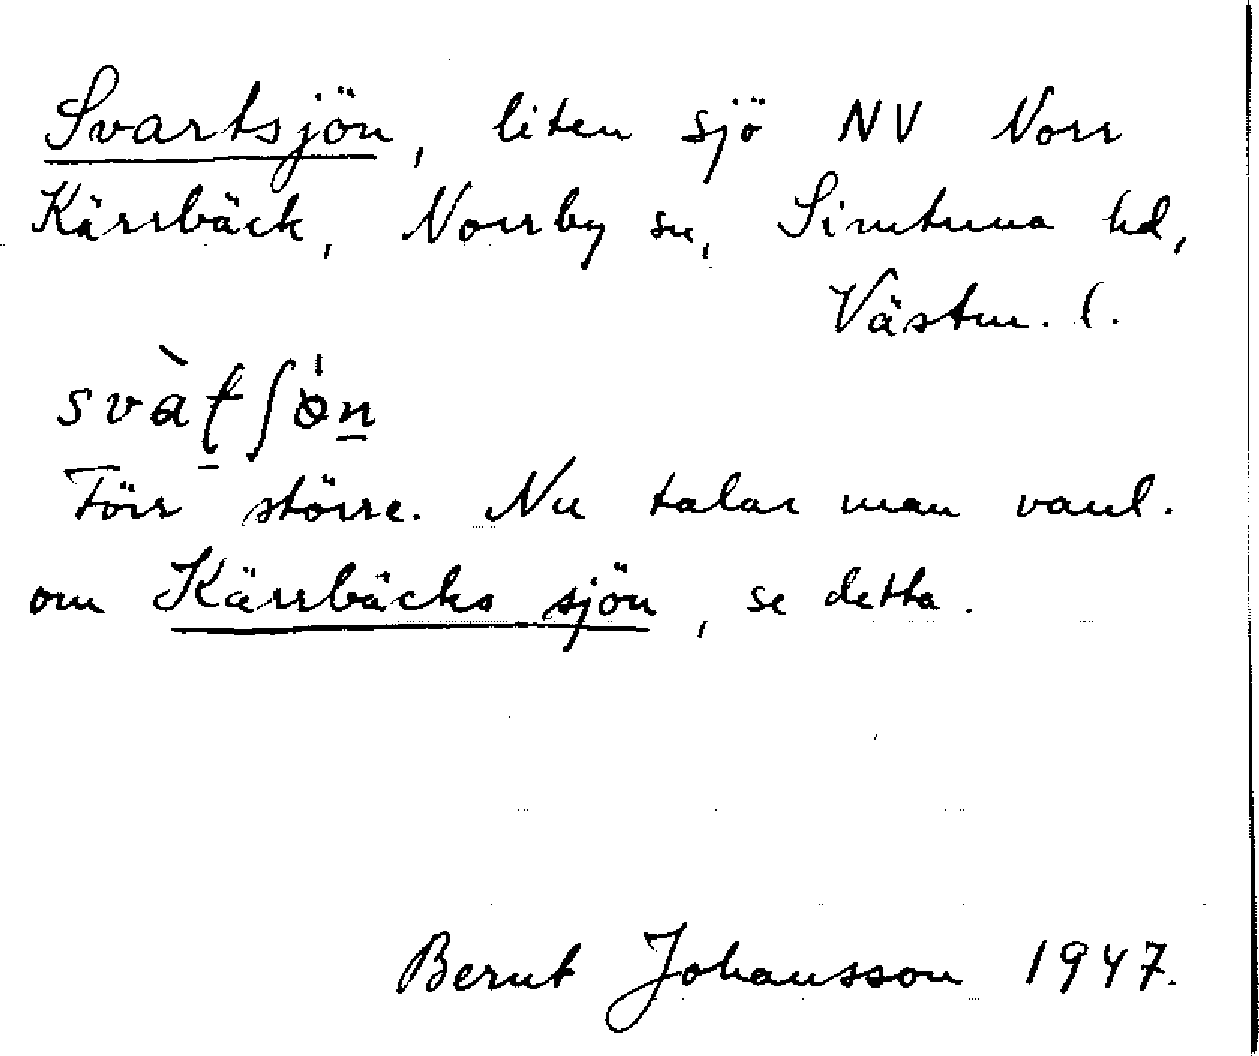 Svartsjön, liten sjö NV Norr
Kärrbäck, Norrby sn, Simtuna hd,
Västm. l.
svàʈʃön
Förr större. Nu talar man vanl.
om Kärrbäcks sjön, se detta.
Bernt Johansson 1947.